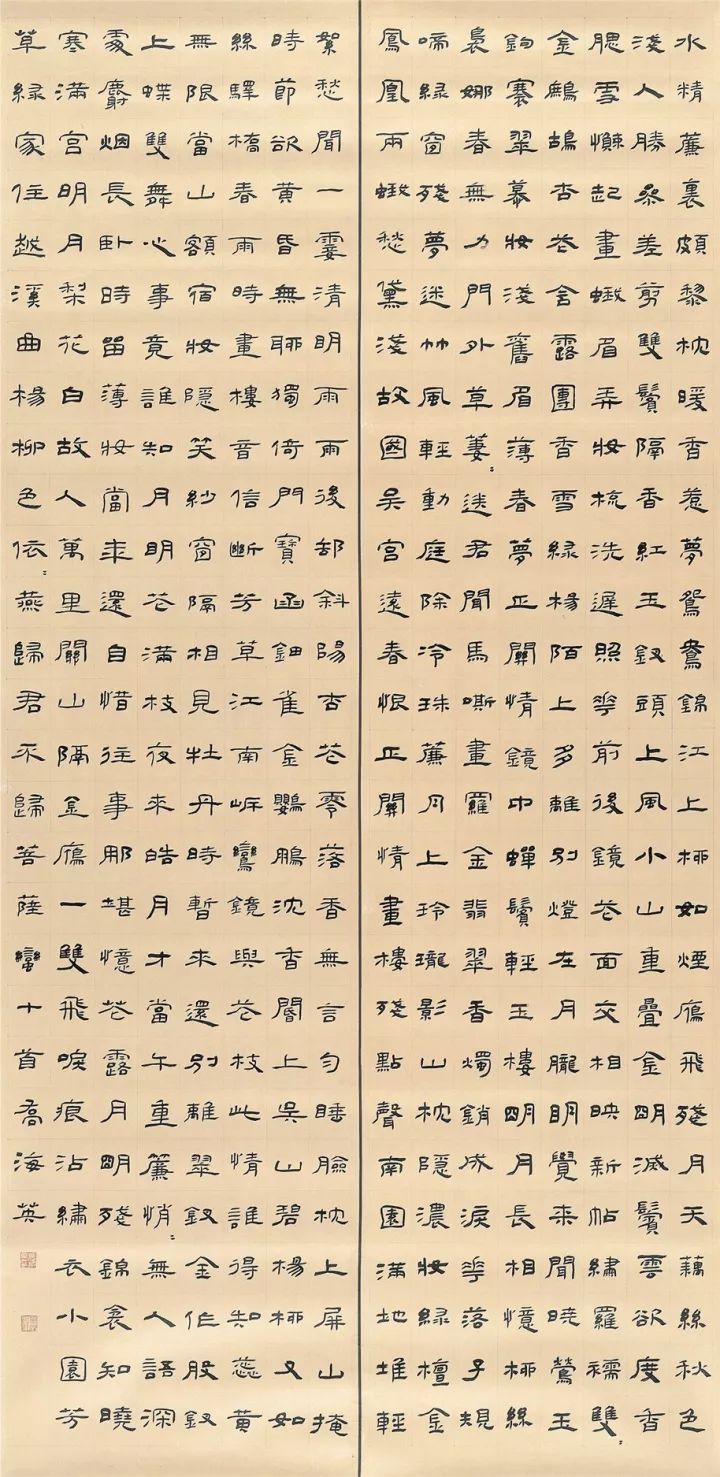 水精簾裏頗黎枕暖香惹夢鴛鴦錦江上柳如煙鴈飛殘月天藕絲秋色
淺人勝參差剪雙鬢隔香紅玉釵頭上風小山重疊金明滅鬢雲欲度香
腮雪懶起畫蛾眉弄妝梳洗遲照花前後鏡花面交相映新帖繡羅襦雙〻
金鷓鴣杏花含露團香雪綠楊陌上多離別燈在月朧明覺來聞曉鶯玉
鉤褰翠幕妝淺舊眉薄春夢正關情鏡中蟬鬢輕玉樓明月長相憶柳絲
裊娜春無力門外草萋〻送君聞馬嘶畫羅金翡翠香燭銷成淚花落子規
啼綠窗殘夢迷竹風輕動庭除冷珠簾月上玲瓏影山枕隱濃妝綠檀金
鳳凰兩蛾愁黛淺故國吳宮遠春恨正關情畫樓殘點聲南園滿地堆輕
絮愁聞一霎清明雨雨後卻斜陽杏花零落香無言勻睡臉枕上屏山掩
時節欲黃昏無聊獨倚門寶函鈿雀金鸂鶒沈香閣上吳山碧楊柳又如
絲驛橋春雨時畫樓音信斷芳草江南岸鸞鏡與花枝此情誰得知蕊黃
無限當山額宿妝隱笑紗窗隔相見牡丹時暫來還別離翠釵金作股釵
上蝶雙舞心事竟誰知月明花滿枝夜來皓月才當午重簾悄〻無人語深
處麝烟長臥時留薄妝當年還自惜往事那堪憶花露月明殘錦衾知曉
寒滿宮明月梨花白故人萬里關山隔金鴈一雙飛淚痕沾繡衣小園芳
草綠家住越溪曲楊柳色依〻燕歸君不歸菩薩蠻十首喬海英